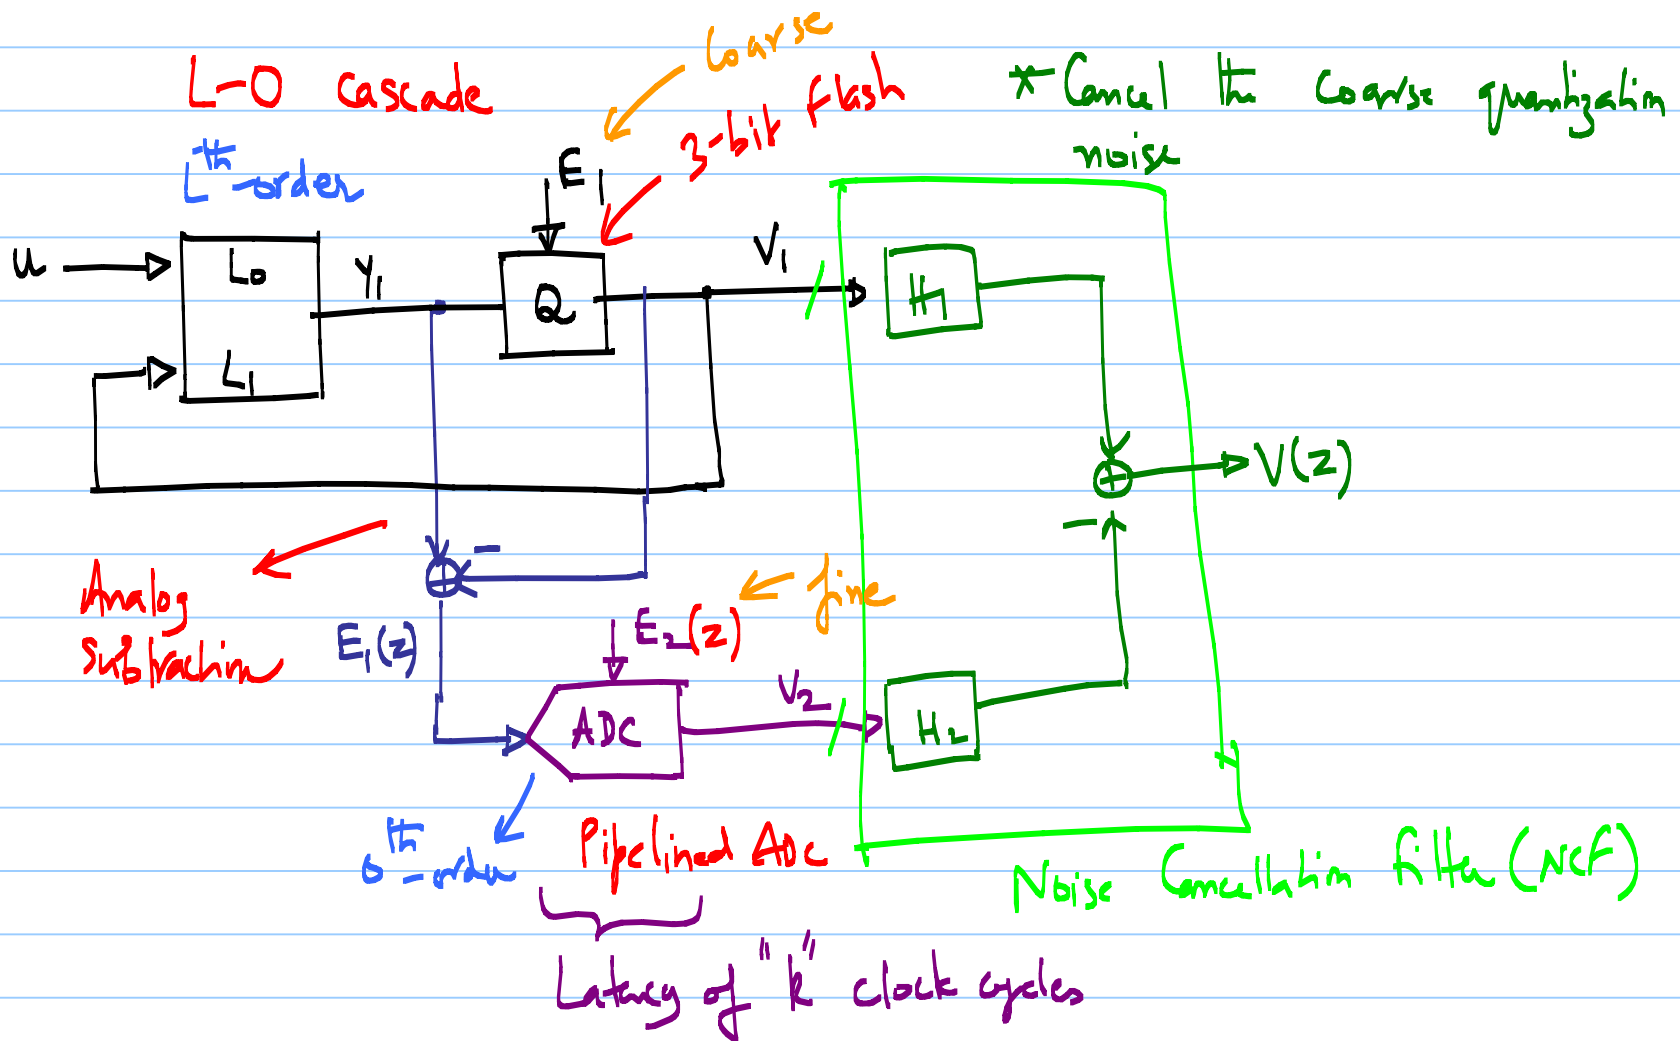 Coarse
L-0 cascade
3-bit flash
*Cancel the coarse quantization
noise
Lth-order
E1
u
L0
L1
Y1
Q
V1
H1
V(z)
-
-
Analog
subtraction
E1(z)
E2(z)
fine
ADC
V2
H2
0th-order
Pipelined ADC
Noise Cancellation filter (NCF)
Latency of "k" clock cycles